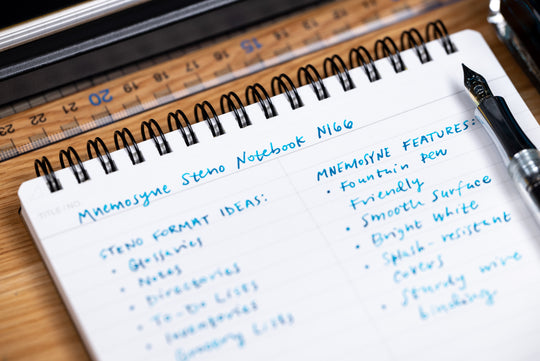 23
22
21
20
19
18
15
TITLE/NO.
Mnemosyne Steno Notebook N166
STENO FORMAT IDEAS:
• Glossaries
• Notes
• Directories
• To-Do Lists
• Inventories
• Grocery Lists
MNEMOSYNE FEATURES:
• Fountain pen
Friendly
• Smooth Surface
• Bright White
• Splash-resistant
Covers
• Sturdy wire
binding